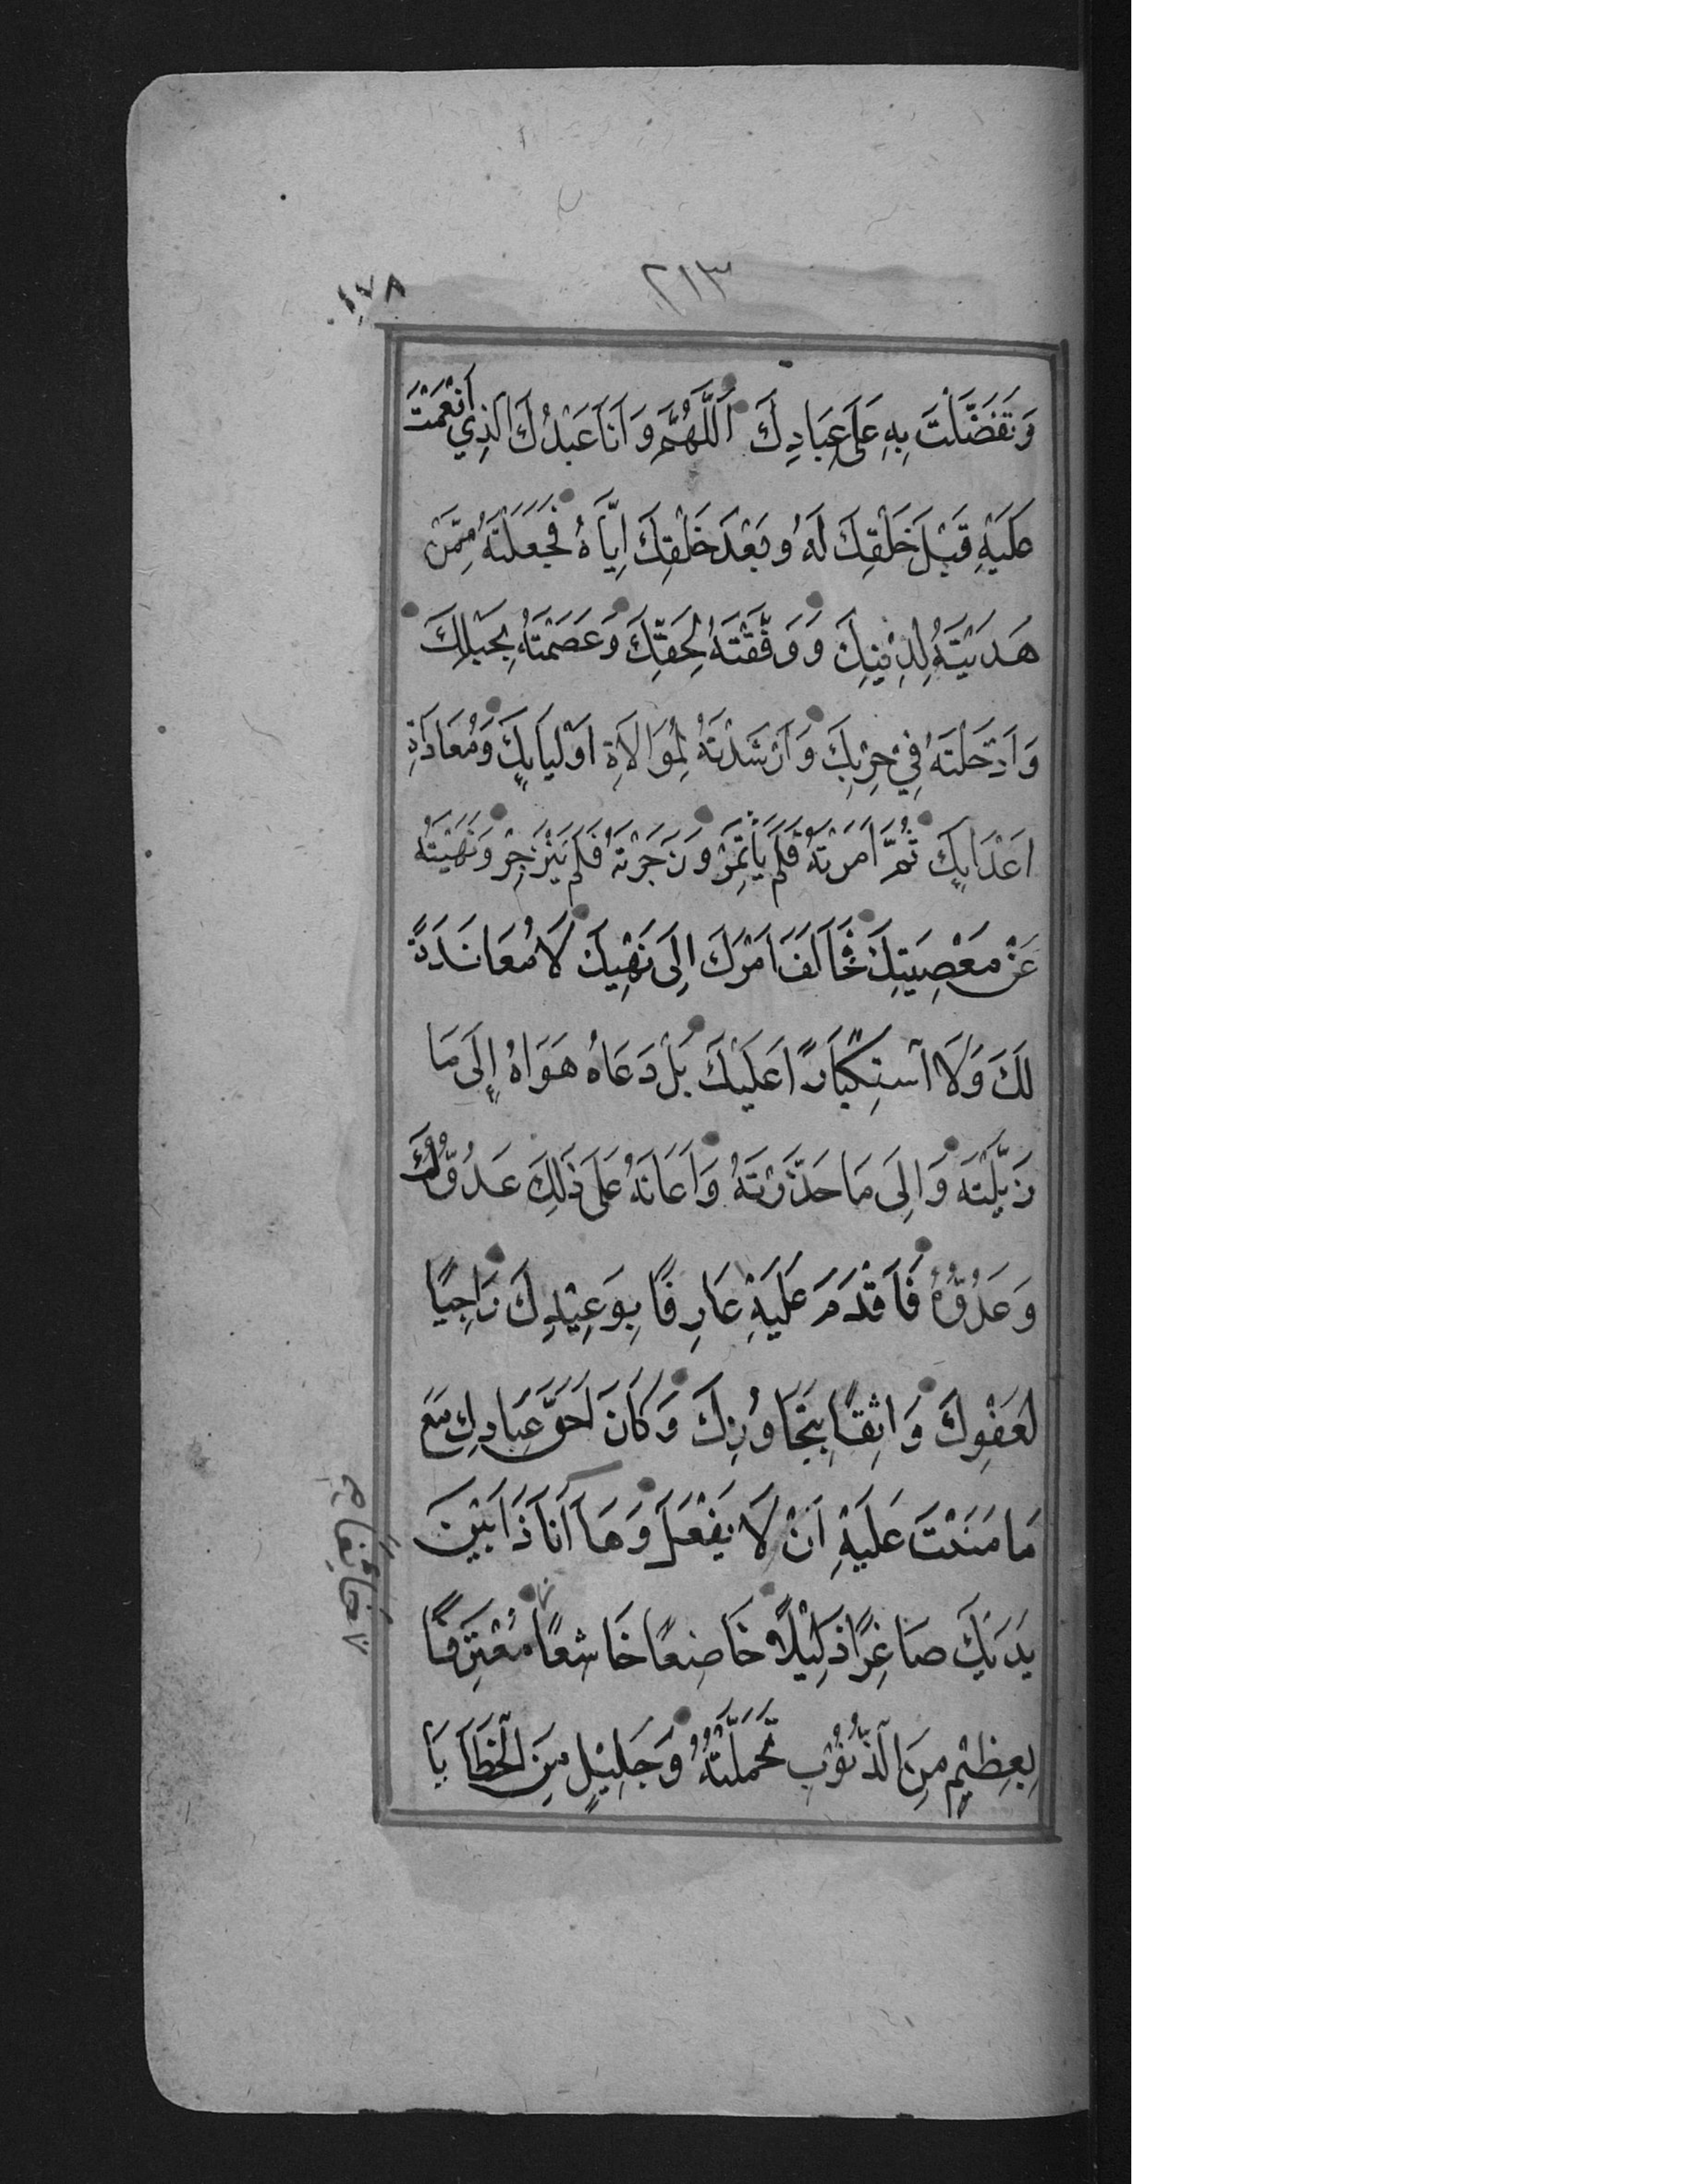 ٢١٣
١٧٨
وَتَفَضَّلْتَ بِهِ عَلَى عِبَادِكَ اَللّٰهُمَّ وَاَنَا عَبْدُكَ الَّذِي اَنْعَمْتَ
عَلَيْهِ قَبْلَ خَلْقِكَ لَهُ وَبَعْدَ خَلْقِكَ اِيَّاهُ فَجَعَلْتَهُ مِمَّنْ
هَدَيْتَهُ لِدِيْنِكَ وَوَفَّقْتَهُ لِحَقِّكَ وَعَصَمْتَهُ بِحَبْلِكَ
وَاَدْخَلْتَهُ فِيْ حِزْبِكَ وَاَرْشَدْتَهُ لِمُوَالَاةِ اَوْلِيَايِكَ وَمُعَادَاةِ
اَعْدَايِكَ ثُمَّ اَمَرْتَهُ فَلَمْ يَأْتَمِرْ وَزَجَرْتَهُ فَلَمْ يَنْزَجِرْ وَنَهَيْتَهُ
عَنْ مَعْصِيَتِكَ فَخَالَفَ اَمْرَكَ اِلَى نَهْيِكَ لَا مُعَانَدَةً
لَكَ وَلَا اسْتِكْبَارًا عَلَيْكَ بَلْ دَعَاهُ هَوَاهُ اِلَى مَا
زَيَّلْتَهُ وَاِلَى مَا حَذَّرْتَهُ وَاَعَانَهُ عَلَى ذٰلِكَ عَدُوُّكَ
وَعَدُوُّهُ فَاَقْدَمَ عَلَيْهِ عَارِفًا بِوَعِيْدِكَ رَاجِيًا
لِعَفْوِكَ وَاثِقًا بِتَجَاوُزِكَ وَكَانَ اَحَقَّ عِبَادِكَ مَعَ
مَا مَنَنْتَ عَلَيْهِ اَنْ لَا يَفْعَلَ وَهَا اَنَا ذَا بَيْنَ
يَدَيْكَ صَاغِرًا ذَلِيْلًا خَاضِعًا خَاشِعًا مُعْتَرِفًا
بِعَظِيْمٍ مِنَ الذُّنُوْبِ تَحَمَّلْتُهُ وَجَلِيْلٍ مِنَ الْخَطَايَا